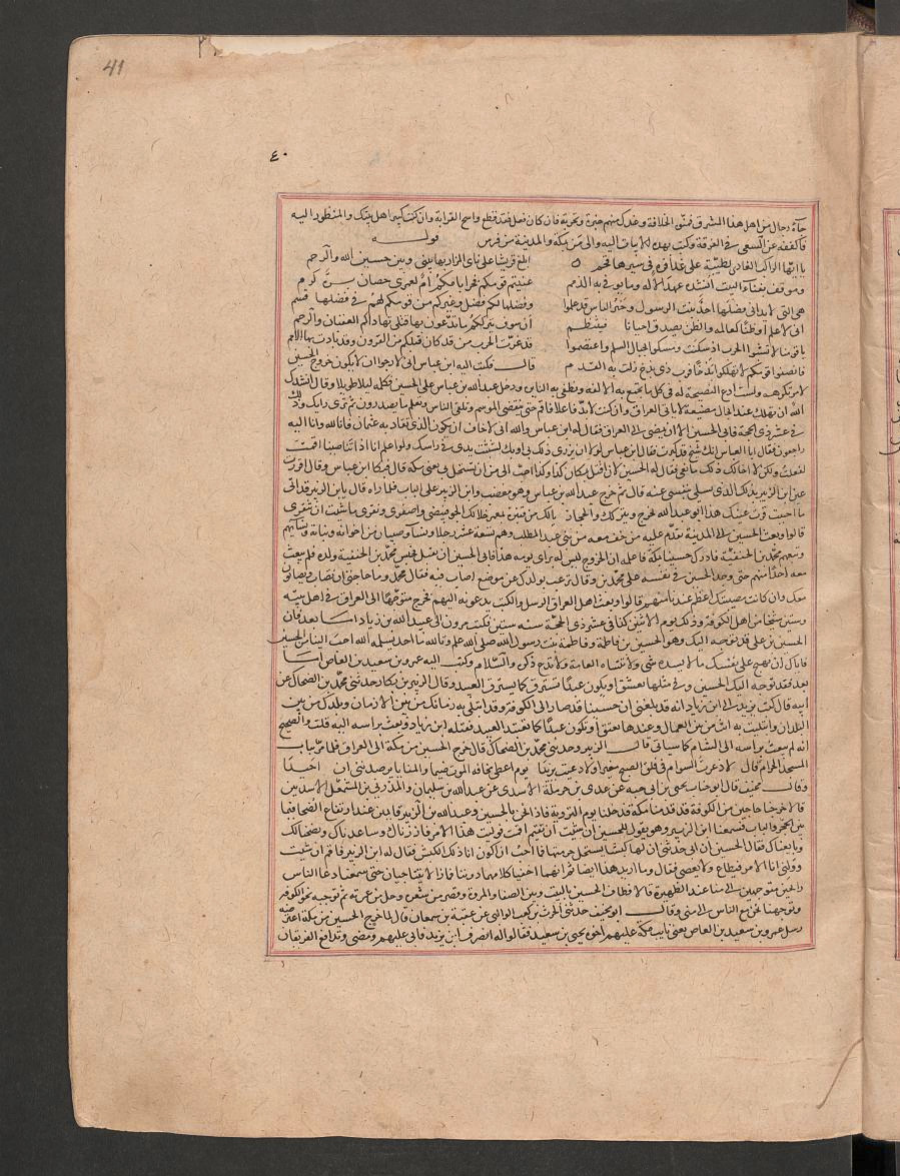 41
٤٠
جاءه رجال من اهل هذا المشرق فمنّوه الخلافة وعندك منهم خبرة وتجربة فان كان فعل فقد قطع واسح القرابة وانت كبير اهل بيتك والمنظور اليه
فاكففه عن السعى في الفرقة وكتب بهذه الابيات اليه والى من بمكة والمدينة من قريش قوله
يا ايها الراكب الغادى لطيته على عذافرة في سيرها قحم ابلغ قريشا على ناى المزار بها بينى وبين حسين الله والرحم
وموقف بفناء البيت انشده عهد الاله وما يوفى به الذمم عنيتم قومكم فخرا بامكم أم لعمرى حصان برة كرم
هي التى لا يدانى فضلها احد بنت الرسول وخير الناس قد علموا وفضلها لكم فضل وغيركم من قومكم لهم في فضلها قسم
انى لاعلم او ظنا كعالمه والظن يصدق احيانا فينتظم ان سوف يترككم ما تدعون بها قتلى تهاداكم العقبان والرخم
يا قومنا لا تشبوا الحرب اذ سكنت ومسكوا بحبال السلم واعتصموا قد غرت الحرب من قد كان قبلكم من القرون وقد بادت بها الامم
فانصفوا قومكم لا تهلكوا بذخا فرب ذى بذخ زلت به القدم قال فكتب اليه ابن عباس انى لارجوا ان لا يكون خروج الحسين
لامر تكرهه ولست ادع النصيحة له في كل ما تجتمع به الالفة وتطفى به النايره ودخل عبدالله بن عباس على الحسين فكلمه ليلا طويلا وقال انشدك
الله ان تهلك غدا بحال مضيعة لا تاتى العراق وان كنت لا بد فاعلا فاقم حتى ينقضى الموسم وتلقى الناس وتعلم ما يصدرون ثم ترى رايك وذلك
في عشر ذى الحجة فابى الحسين الا ان يمضى الى العراق فقال له ابن عباس والله انى لاخاف ان تكون الذى يقاد به عثمان فانا لله وانا اليه
راجعون فقال ابا العباس انك شيخ قد كبرت فقال ابن عباس لولا ان يزرى ذلك بى وبك لنشبت يدى في راسك ولو اعلم انا اذا تناصينا اقمت
لفعلت ولكن لا اخال ذلك نافعى فقال له الحسين لان اقتل بمكان كذا وكذا احب الى من ان تستحل بى يعنى مكة قال فبكا ابن عباس وقال اقررت
عين ابن الزبير بذلك الذى سلى نفسى عنه قال ثم خرج عبد الله بن عباس وهو مغضب وابن الزبير على الباب فلما راه قال يا بن الزبير قد اتى
ما احببت قرت عينك هذا ابو عبد الله يخرج ويتركك والحجاز يالك من قنبرة بمعمر خلا لك الجو فبيضى واصفرى ونقرى ما شئت ان تنقرى
قالوا وبعث الحسين الى المدينة يقدم عليه من خف معه من بنى عبد المطلب وهم تسعة عشر رجلا ونسا وصبيان من اخوانه وبناته ونسائهم
وتبعهم محمد بن الحنفية فادرك حسينا بمكة فاعلمه ان الخروج ليس له براى يومه هذا فابى الحسين ان يقبل فحبس محمد بن الحنفية ولده فلم يبعث
معه احدا منهم حتى وجد الحسين في نفسه على محمد بن وقال ترغب بولدك عن موضع اصاب فيه فقال محمد وما حاجتى ان تصاب ويصابون
معك وان كانت مصيبتك اعظم عندنا منهم قالوا وبعث اهل العراق الرسل والكتب يدعونه اليهم فخرج متوجها الى العراق في اهل بيته
وستين شخا من اهل الكوفة وذلك يوم الاثنين في عشر ذى الحجة سنة ستين فكتب مرون الى عبيد الله بن زياد اما بعد فان
الحسين بن على قد توجه اليك وهو الحسين بن فاطمة وفاطمة بنت رسول الله صلى الله عليه وتالله ما احد يسلمه الله احب الينا من الحسين
فاياك ان تهيج على نفسك ما لا يسده شى ولا تنساه العامة ولا تدع ذكره والسلام وكتب اليه عمرو بن سعيد بن العاص اما
بعد فقد توجه اليك الحسين وفي مثلها تعتق او تكون عبدا تسترق كما يسترق العبيد وقال الزبير بن بكار حدثنى محمد بن الضحاك عن
ابيه قال كتب يزيد الى ابن زياد انه قد بلغنى ان حسينا قد صار الى الكوفة وقد ابتلى به زمانك من بين الازمان وبلدك من بين
البلدان وابتليت به انت من بين العمال وعندها تعتق او تكون عبدا كما تعتبد العبيد فقتله ابن زياد وبعث براسه اليه قلت والصحيح
انه لم يبعث براسه الى الشام كما سياتى قال الزبير وحدثنى محمد بن الضحاك قال خرج الحسين من مكة الى العراق فلما مر بباب
المسجد الحرام قال لا ذعرت السوام في فلق الصبح مغيرا ولا دعيت يزيدا يوم اعطى مخافة الموت ضيما والمنايا يرصدننى ان احيدا
وقال ابو مخنف قال ابو جناب يحيى بن ابى حية عن عدى بن حرملة الاسدى عن عبد الله بن سليم والمذرى بن المشمعل الاسديين
قالا خرجنا حاجين من الكوفة فقدمنا مكة فدخلنا يوم التروية فاذا نحن بالحسين وعبد الله بن الزبير قايمين عند ارتفاع الضحا فيما
بين الحجر والباب فسمعنا ابن الزبير وهو يقول للحسين ان شيت ان تقيم اقمت فوليت هذا الامر فازرناك وساعدناك ونصحنا لك
وبايعناك فقال الحسين ان ابى حدثنى ان لها كبشا يستحل حرمتها فما احب ان اكون انا ذلك الكبش فقال له ابن الزبير فاقم ان شيت
وولنى انا الامر فتطاع ولا تعصى فقال وما اريد هذا ايضا ثم انهما اخفيا كلامهما دوننا فما زالا يتناجيان حتى سمعنا دعا الناس
رايحين متوجهين الى منا عند الظهيرة قالا فطاف الحسين بالبيت وبين الصفا والمروة وقصر من شعره وحل من عمرته ثم توجه نحو الكوفة
وتوجهنا نحن مع الناس الى منى وقال ابو مخنف حدثنى الحرث بن كعب الوالبى عن عقبة بن سمعان قال لما خرج الحسين من مكة اعترضه
رسل عمرو بن سعيد بن العاص يعنى نايب مكة عليهم اخوه يحيى بن سعيد فقالوا له انصرف اين تريد فابى عليهم ومضى وتدافع الفريقان